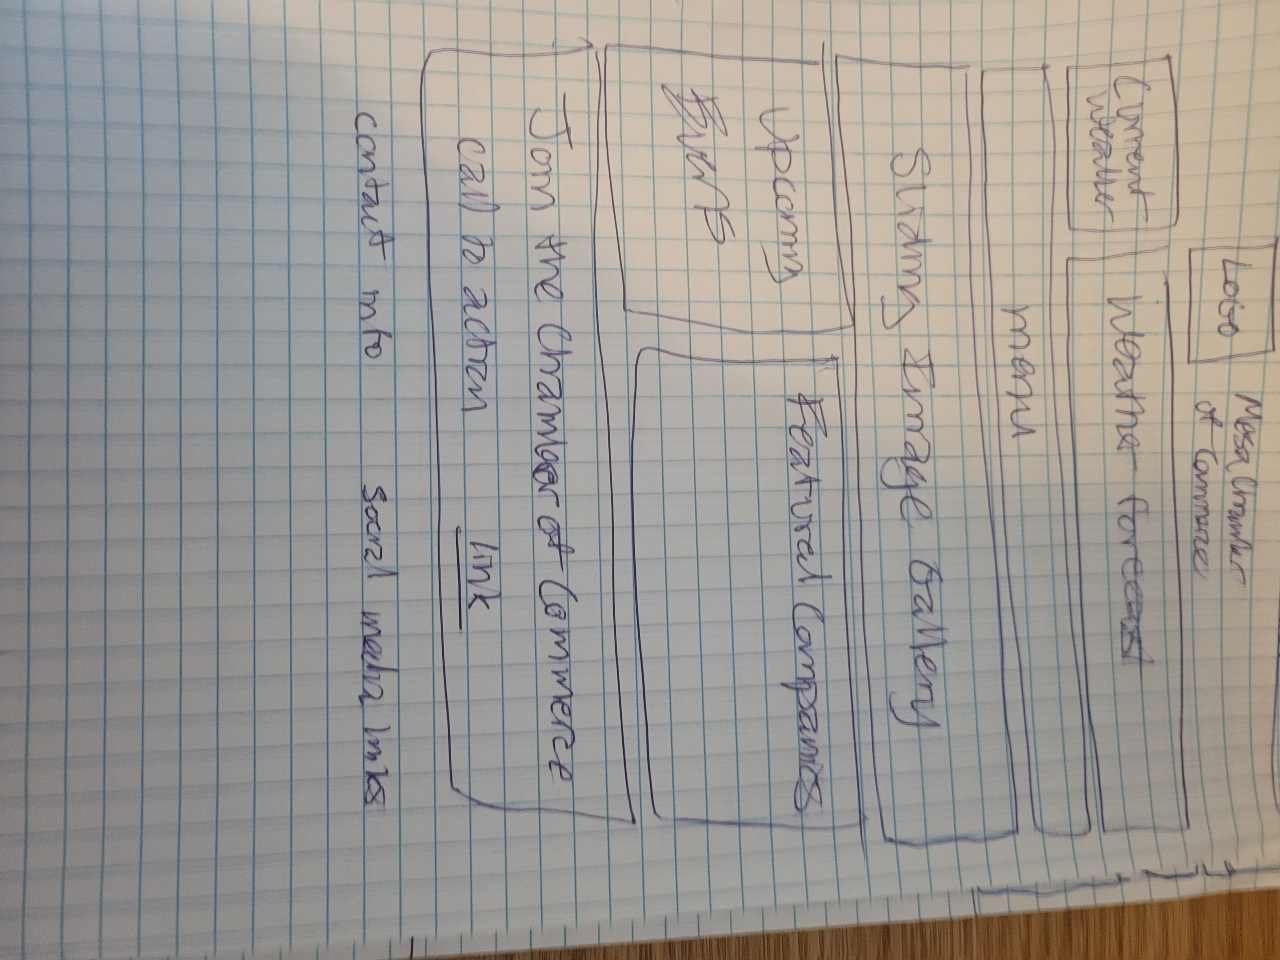 LOGO
Mesa Chamber
of Commerce
Current
Weather
Weather forecast
menu
Sliding Image Gallery
Upcoming
Events
Featured Companies
Join the Chamber of Commerce
call to action
link
contact info
social media links